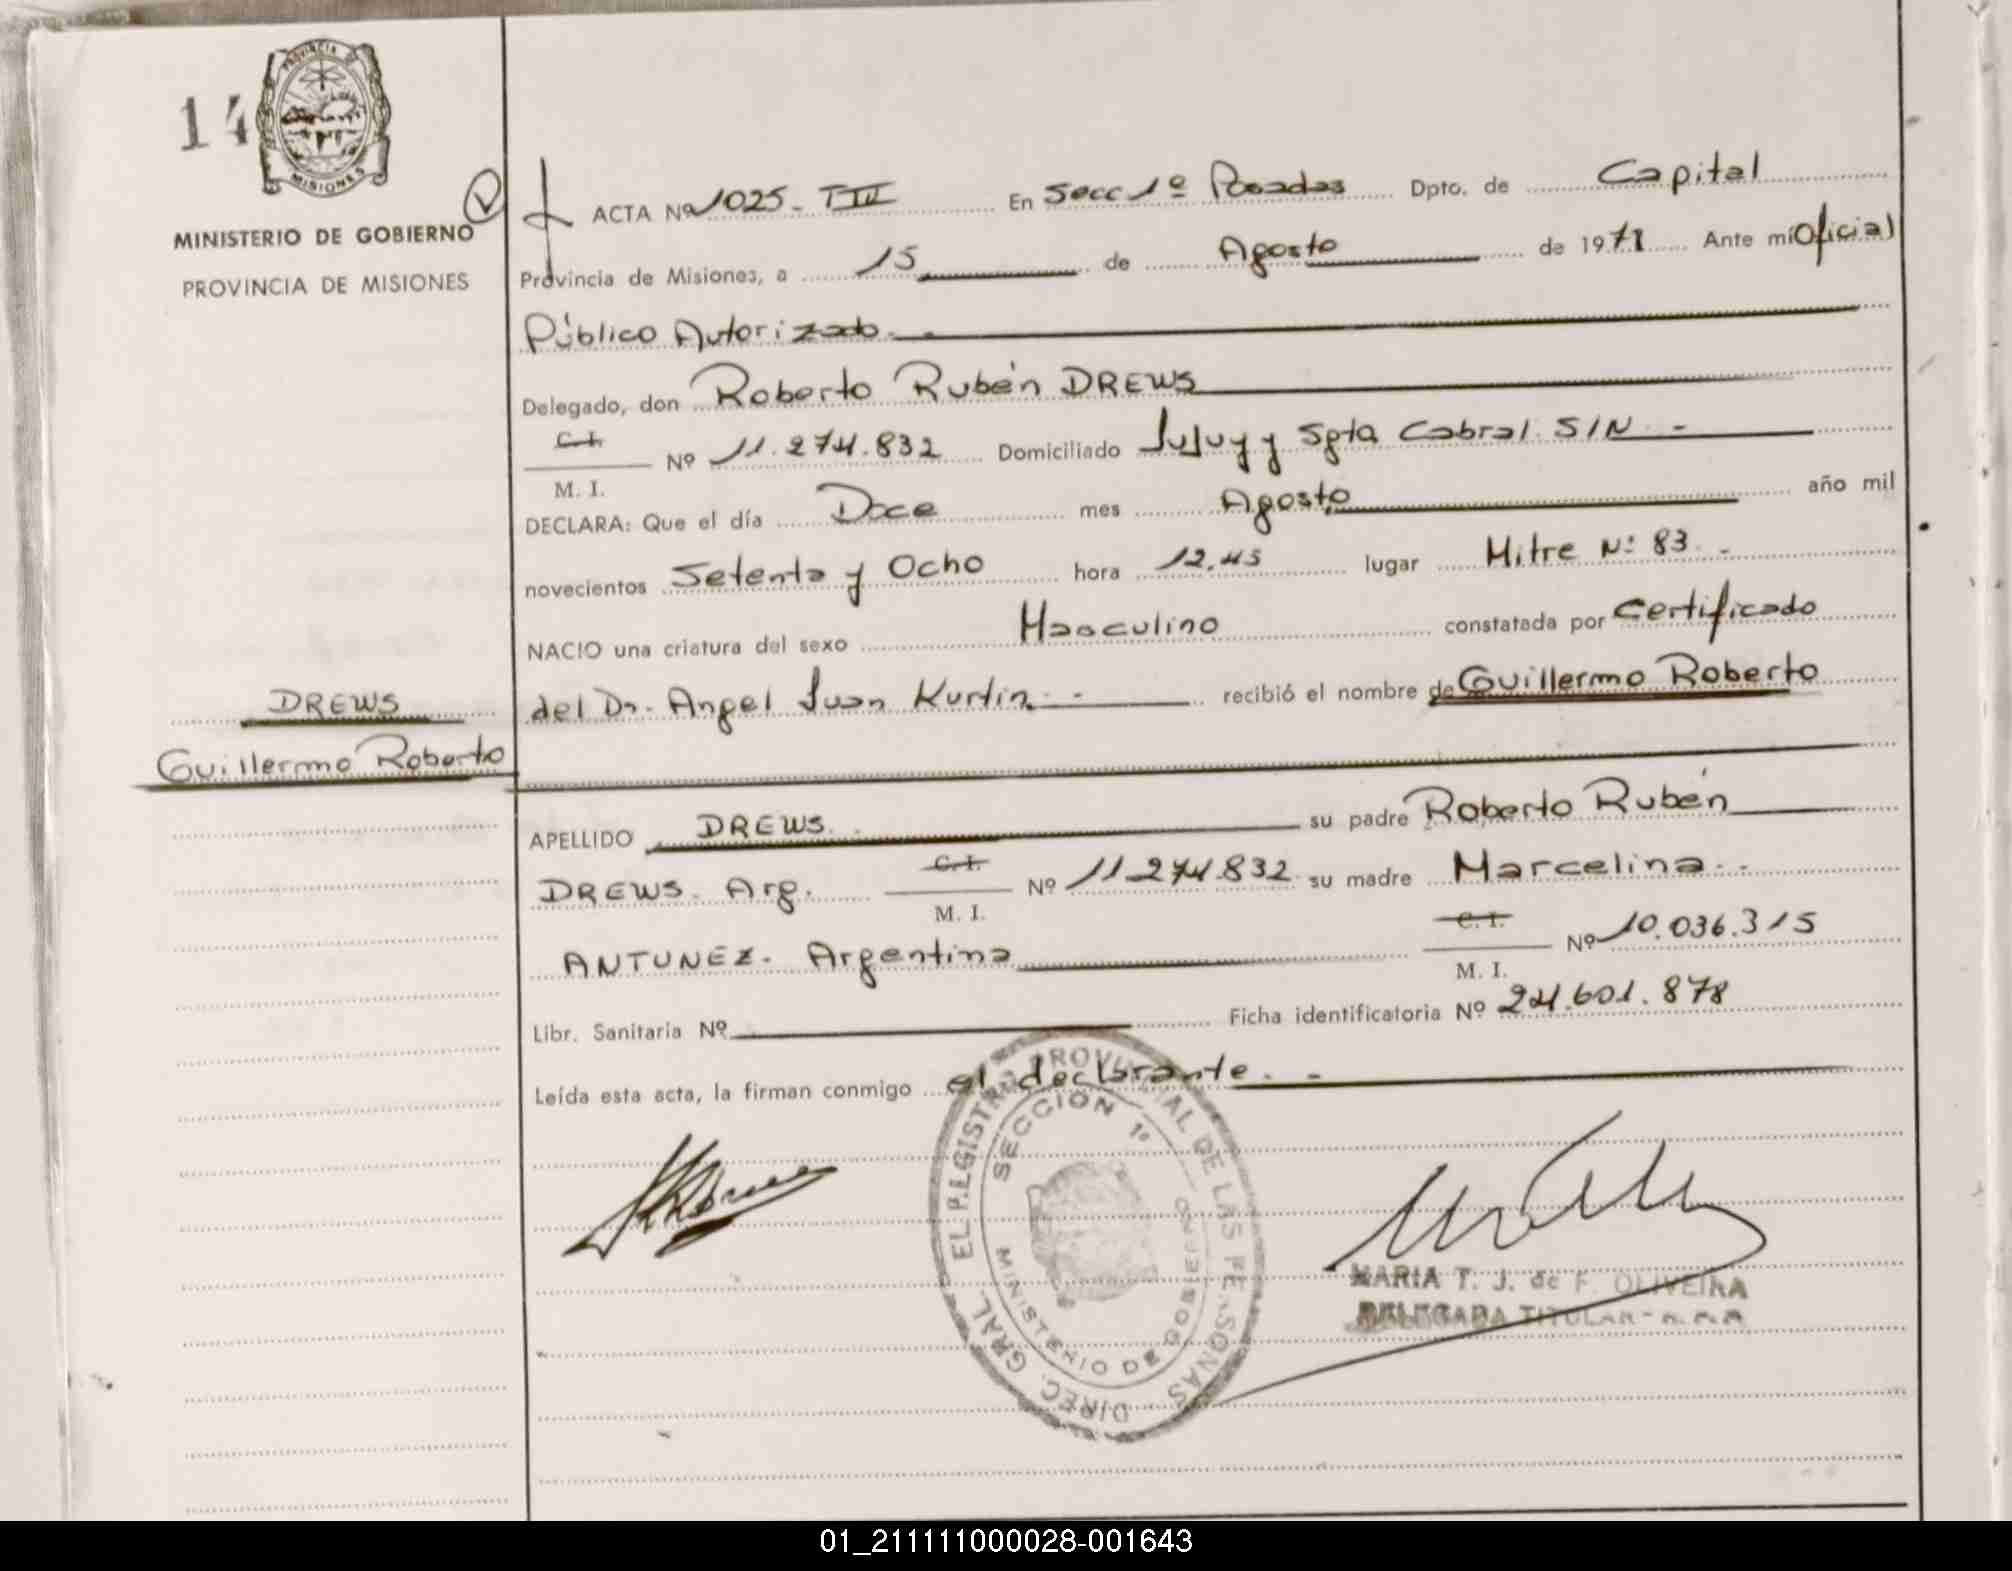 14
PROVINCIA DE
MISIONES
MINISTERIO DE GOBIERNO
PROVINCIA DE MISIONES
ACTA Nº 1025 - T III En Secc 1º Posadas Dpto. de Capital
Provincia de Misiones, a 15 de Agosto de 1978 Ante mí Oficial
Público Autorizado. -
Delegado, don Roberto Rubén DREWS
C. I.
M. I. Nº 11.274.832 Domiciliado Jujuy y Sgto Cabral S/N -
DECLARA: Que el día Doce mes Agosto año mil
novecientos Setenta y Ocho hora 12.45 lugar Mitre Nº 83. -
NACIO una criatura del sexo Masculino constatada por Certificado
del Dr. Angel Juan Kurtin. - recibió el nombre de Guillermo Roberto
DREWS
Guillermo Roberto
APELLIDO DREWS. su padre Roberto Rubén
DREWS. Arg. C. I. M. I. Nº 11.274.832 su madre Marcelina. -
ANTUNEZ. Argentina C. I. M. I. Nº 10.036.315
Libr. Sanitaria Nº Ficha identificatoria Nº 24.601.878
Leída esta acta, la firman conmigo el declarante. -
SECCION 1º
MINISTERIO DE GOBIERNO
MARIA T. J. de F. OLIVEIRA
DELEGADA TITULAR
01_211111000028-001643